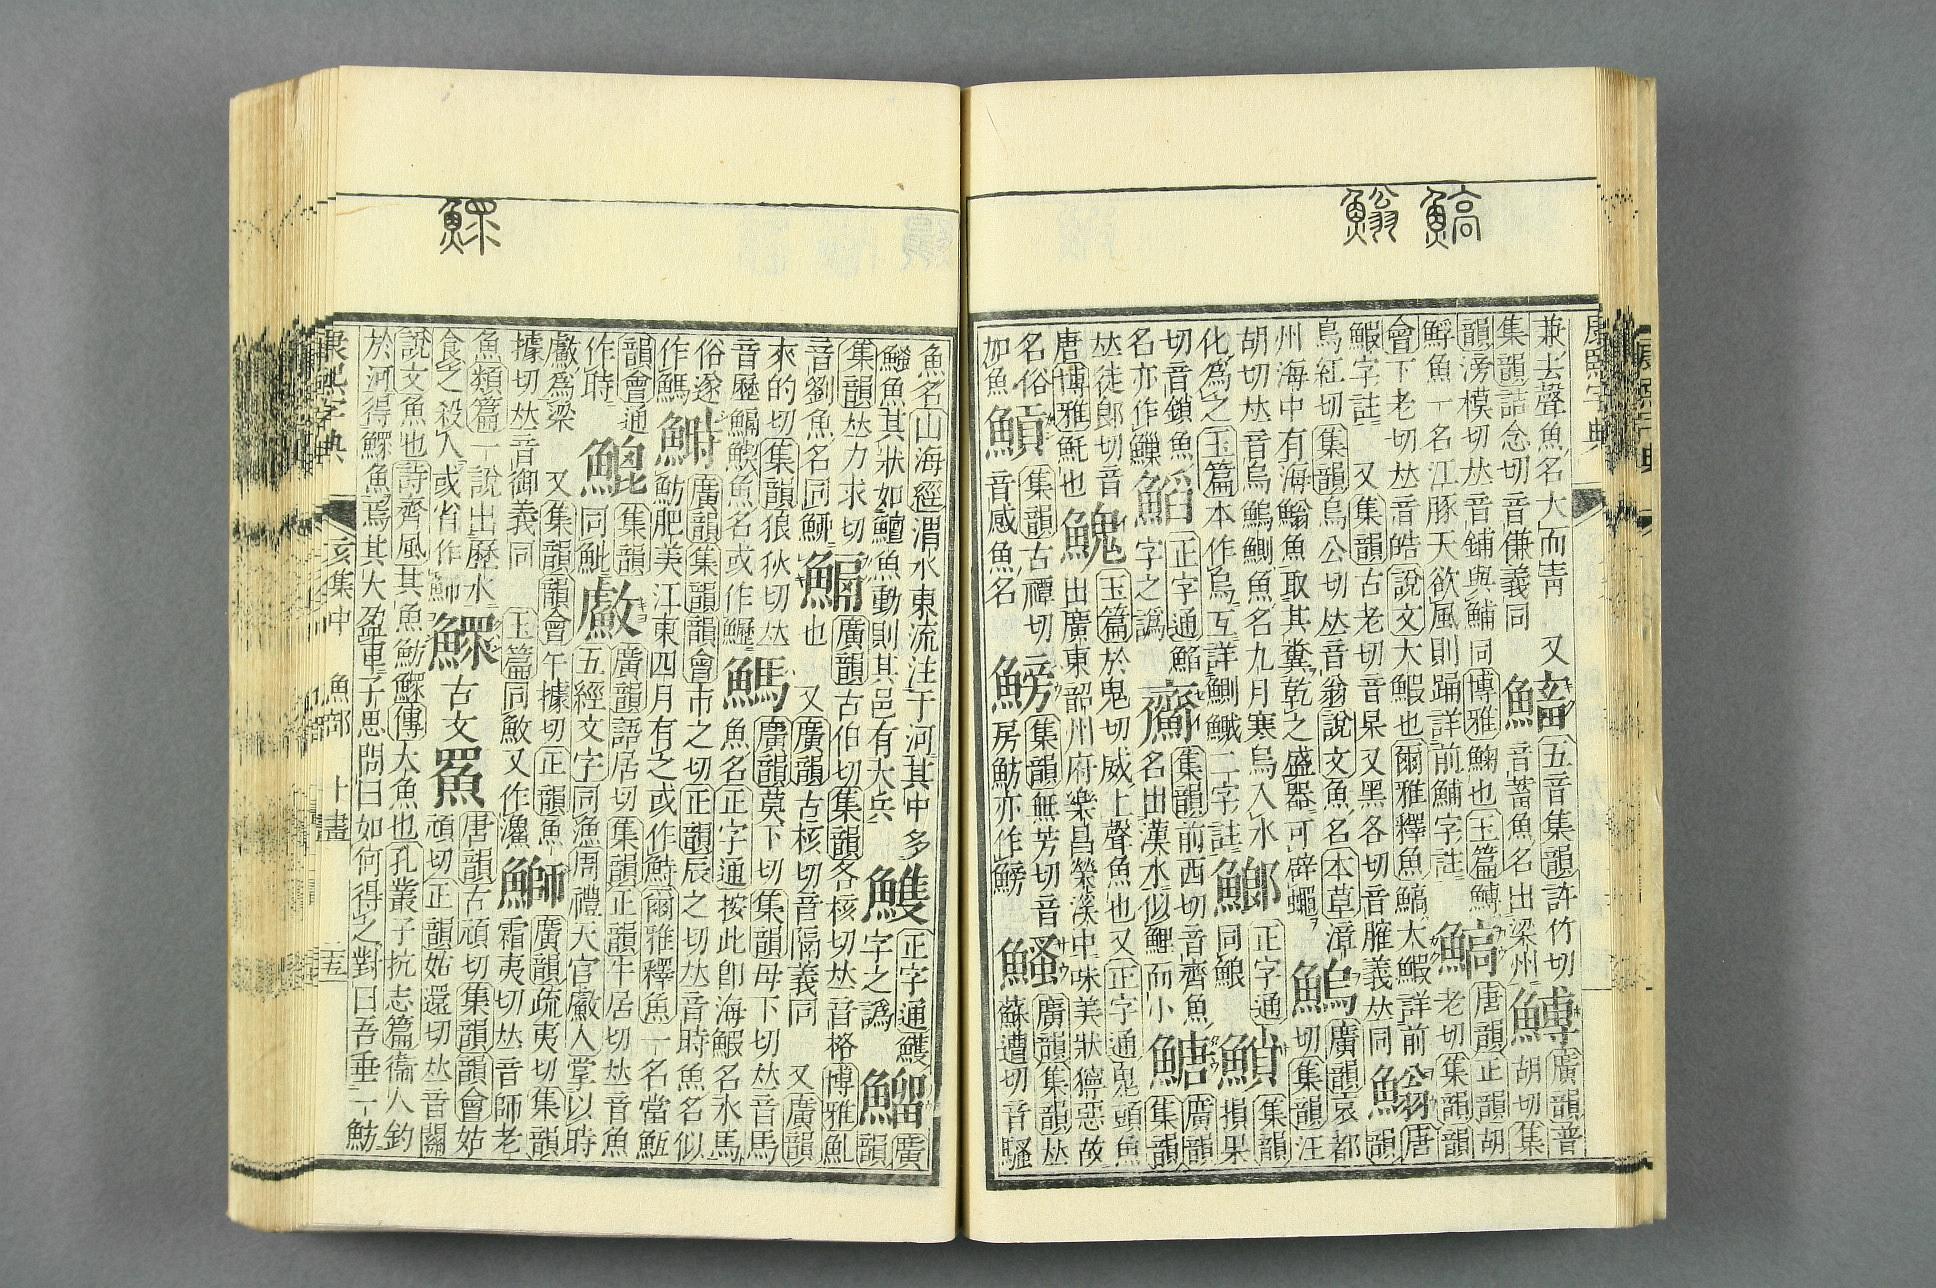 鰝
䱵
康熙字典
兼去聲魚名大而靑 又
集韻詰念切音傔義同
五音集韻許竹切
音蓄魚名出梁州
䱐
廣韻普
胡切集
韻滂模切𠀤音鋪與鯆同博雅
䱐魚一名江豚天欲風則踊詳前鯆字註
鰝
唐韻正韻胡
老切集韻韻
會下老切𠀤音皓說文大鰕也爾雅釋魚鰝大鰕詳前
鰕字註 又集韻古老切音杲又黑各切音雘義𠀤同
䱵
唐
韻
烏紅切集韻烏公切𠀤音翁說文魚名本草漳
州海中有海䱵魚取其糞乾之盛器可辟蠅
鰞
廣韻哀都
切集韻汪
胡切𠀤音烏鰞鰂魚名九月寒烏入水
化爲之玉篇本作烏互詳鰂鱡二字註
正字通
集韻
損果
切音鎖魚
名亦作
正字通
字之譌
集韻前西切音齊魚
名出漢水似鯉而小
䱽
廣韻
集韻
𠀤徒郞切音
唐博雅魠也
玉篇於鬼切威上聲魚也又正字通鬼頭魚
出廣東韶州府樂昌榮溪中味美狀獰惡故
名俗
加魚
集韻古禫切
音感魚名
鰟
集韻無芳切音
房魴亦作鰟
鰠
廣韻集韻𠀤
蘇遭切音騷
鰥
魚名山海經渭水東流注于河其中多
鰠魚其狀如鱣魚動則其邑有大兵
正字通鱯
字之譌
鰡
廣
韻
集韻𠀤力求切
音劉魚名同
廣韻古伯切集韻各核切𠀤音格博雅
也 又廣韻古核切音隔義同 又廣韻
來的切集韻狼狄切𠀤
音歷 魚名或作
廣韻莫下切集韻母下切𠀤音馬
魚名正字通按此卽海鰕名水馬
俗遂
作
鰣
廣韻集韻韻會市之切正韻辰之切𠀤音時魚名似
魴肥美江東四月有之或作 爾雅釋魚一名當魱
韻會通
作時
集韻
同魮
䱷
廣韻語居切集韻正韻牛居切𠀤音魚
五經文字同漁周禮天官䱷人掌以時
䱷爲梁 又集韻韻會午據切正韻魚
據切𠀤音御義同 玉篇同魰又作
鰤
廣韻疏夷切集韻
霜夷切𠀤音師老
魚類篇一說出歷水
食之殺人或省作
鰥
古文
唐韻古頑切集韻韻會姑
頑切正韻姑還切𠀤音關
說文魚也詩齊風其魚魴鰥傳大魚也孔叢子抗志篇衞人釣
於河得鰥魚焉其大盈車子思問曰如何得之對曰吾垂一魴
康熙字典 亥集中 魚部 十畫